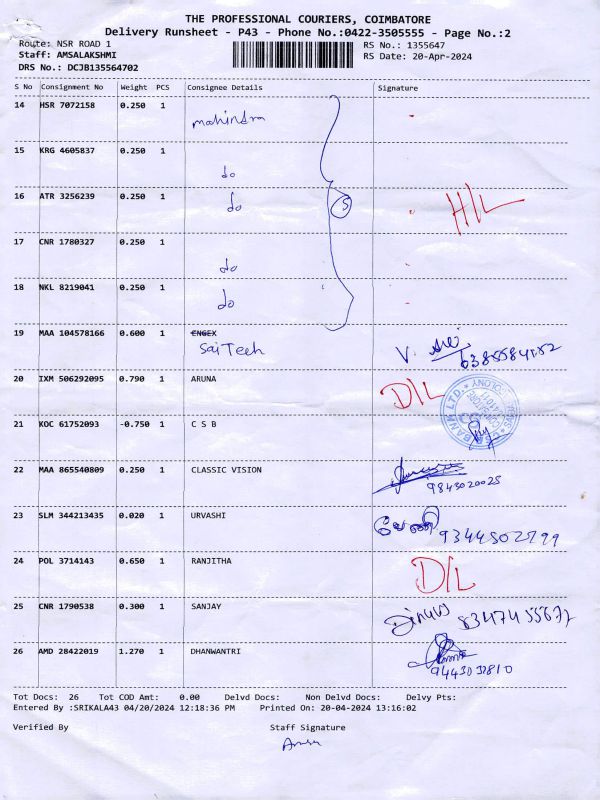 THE PROFESSIONAL COURIERS, COIMBATORE
Delivery Runsheet - P43 - Phone No.:0422-3505555 - Page No.:2
Route: NSR ROAD 1
RS No.: 1355647
Staff: AMSALAKSHMI
RS Date: 20-Apr-2024
DRS No.: DCJB135564702
S No Consignment No Weight PCS Consignee Details Signature
14 HSR 7072158 0.250 1 mahindra
15 KRG 4605837 0.250 1 do
16 ATR 3256239 0.250 1 do 5 H/L
17 CNR 1780327 0.250 1 do
18 NKL 8219041 0.250 1 do
19 MAA 104578166 0.600 1 ENGEX
Sai Tech
20 IXM 506292095 0.790 1 ARUNA D/L
21 KOC 61752093 -0.750 1 C S B
BANK LTD.
22 MAA 865540809 0.250 1 CLASSIC VISION
9843020025
23 SLM 344213435 0.020 1 URVASHI
9344502799
24 POL 3714143 0.650 1 RANJITHA D/L
25 CNR 1790538 0.300 1 SANJAY
26 AMD 28422019 1.270 1 DHANWANTRI
Tot Docs: 26 Tot COD Amt: 0.00 Delvd Docs: Non Delvd Docs: Delvy Pts:
Entered By :SRIKALA43 04/20/2024 12:18:36 PM Printed On: 20-04-2024 13:16:02
Verified By Staff Signature